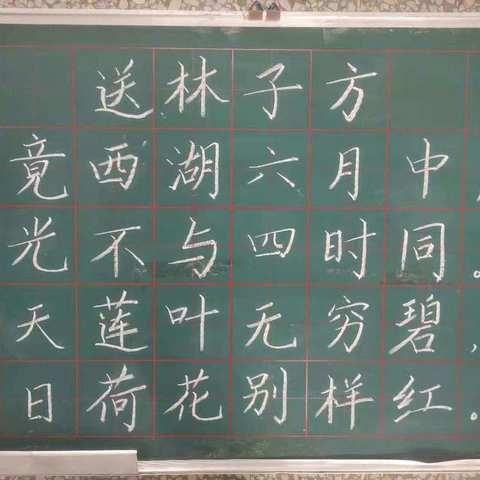 送林子方
竟西湖六月中，
光不与四时同。
天莲叶无穷碧，
日荷花别样红。